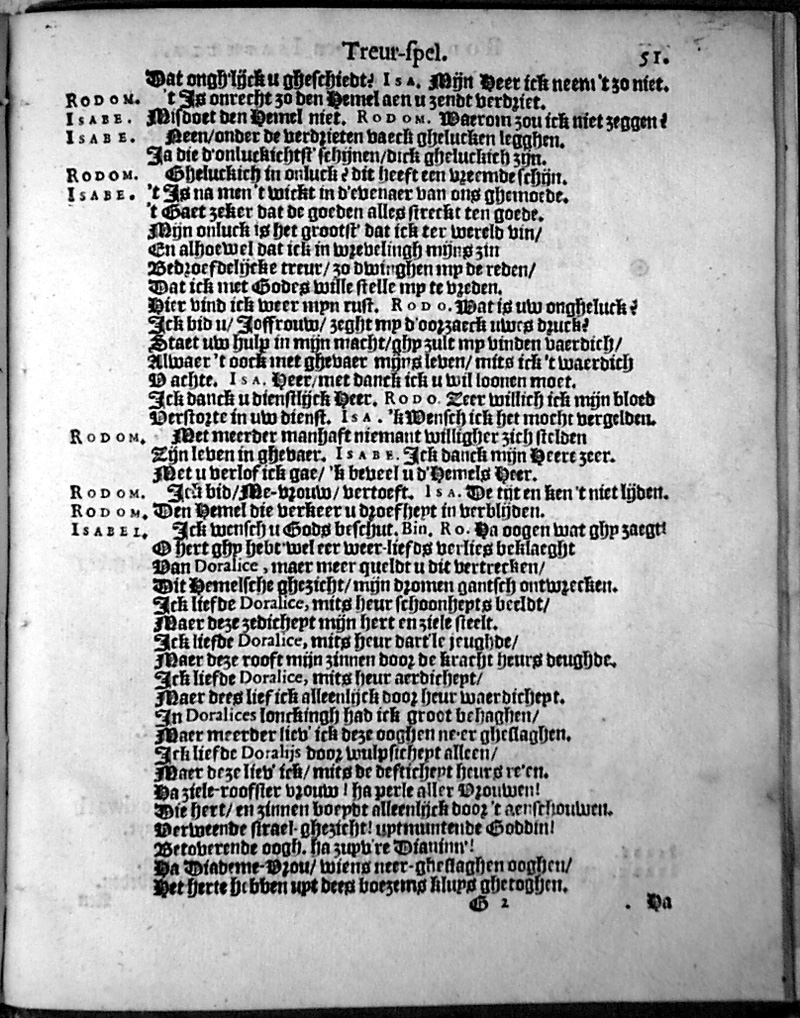 Treur-spel. 51.
Dat ongh'lijck u gheschiedt? ISA. Mijn Heer ick neem 't zo niet.
RODOM. 't Is onrecht zo den Hemel aen u zendt verdriet.
ISABE. Misdoet den Hemel niet. RODOM. Waerom zou ick niet zeggen?
ISABE. Neen/onder de verdrieten vaeck ghelucken legghen.
Ja die d'onluckichtst' schijnen/dick gheluckich zijn.
RODOM. Gheluckich in onluck? dit heeft een vreemde schijn.
ISABE. 't Is na men 't wickt in d'evenaer van ons ghemoede.
't Gaet zeker dat de goeden alles streckt ten goede.
Mijn onluck is het grootst' dat ick ter wereld vin/
En alhoewel dat ick in wrevelingh mijns zin
Bedroefdelijcke treur/ zo dwinghen my de reden/
Dat ick met Godes wille stelle my te vreden.
Hier vind ick weer myn rust. RODO. Wat is uw ongheluck?
Ick bid u/ Joffrouw/ zeght my d'oorzaeck uwes druck?
Staet uw hulp in mijn macht/ghy zult my vinden vaerdich/
Alwaer 't oock met ghevaer mijns leven/ mits ick 't waerdich
V achte. ISA. Heer/met danck ick u wil loonen moet.
Ick danck u dienstlijck Heer. RODO. Zeer willich ick mijn bloed
Verstorte in uw dienst. ISA. 'k Wensch ick het mocht vergelden.
RODOM. Met meerder manhaft niemant willigher zich stelden
Zijn leven in ghevaer. ISABE. Ick danck mijn Heere zeer.
Met u verlof ick gae/ 'k beveel u d'Hemels Heer.
RODOM. Ick bid/Me-vrouw/vertoeft. ISA. De tijt en ken 't niet lijden.
RODOM. Den Hemel die verkeer u droefheyt in verblijden.
ISABEL. Ick wensch u Gods beschut. Bin. RO. Ha oogen wat ghy zaegt!
O hert ghy hebt wel eer weer-liefds verlies beklaeght
Van Doralice, maer meer queldt u dit vertrecken/
Dit Hemelsche ghezicht/ mijn dromen gantsch ontwrecken.
Ick liefde Doralice, mits heur schoonheyts beeldt/
Maer deze zedicheyt mijn hert en ziele steelt.
Ick liefde Doralice, mits heur dart'le jeughde/
Maer deze rooft mijn zinnen door de kracht heurs deughde.
Ick liefde Doralice, mits heur aerdicheyt/
Maer dees lief ick alleenlijck door heur waerdicheyt.
In Doralices lonckingh had ick groot behaghen/
Maer meerder liev' ick deze ooghen neer gheslaghen.
Ick liefde Doralijs door wulpsicheyt alleen/
Maer deze liev' ick/ mits de defticheyt heurs re'en.
Ha ziele-roofster vrouw! ha perle aller Vrouwen!
Die hert/ en zinnen boeydt alleenlijck door 't aenschouwen.
Verweende strael-ghezicht! uytmuntende Goddin!
Betoverende oogh. ha zuyv're Dianinn'!
Ha Diademe-Vrou/ wiens neer-gheslaghen ooghen/
Het herte hebben uyt dees boezems kluys ghetoghen.
G 2 Ha